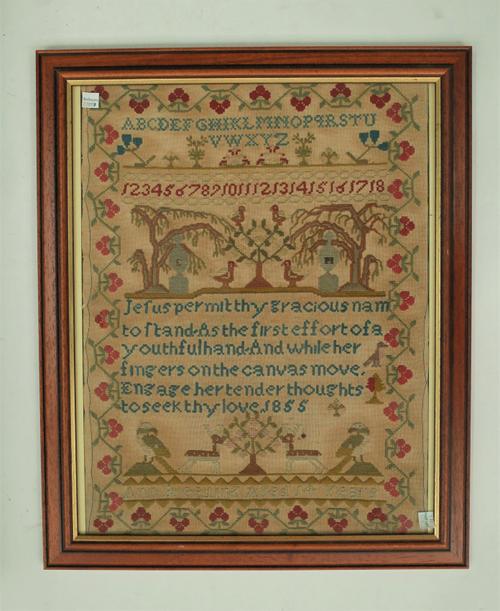 ABCDEFGHIKLMNOPQRSTU
VWXYZ
123456789101112131415161718
Jeſus permit thy gracious nam
to ſtand. As the first effort of a
youthful hand. And while her
fingers on the canvas move.
Engage her tender thoughts
to seek thy love. 1855
Aged 14 Years